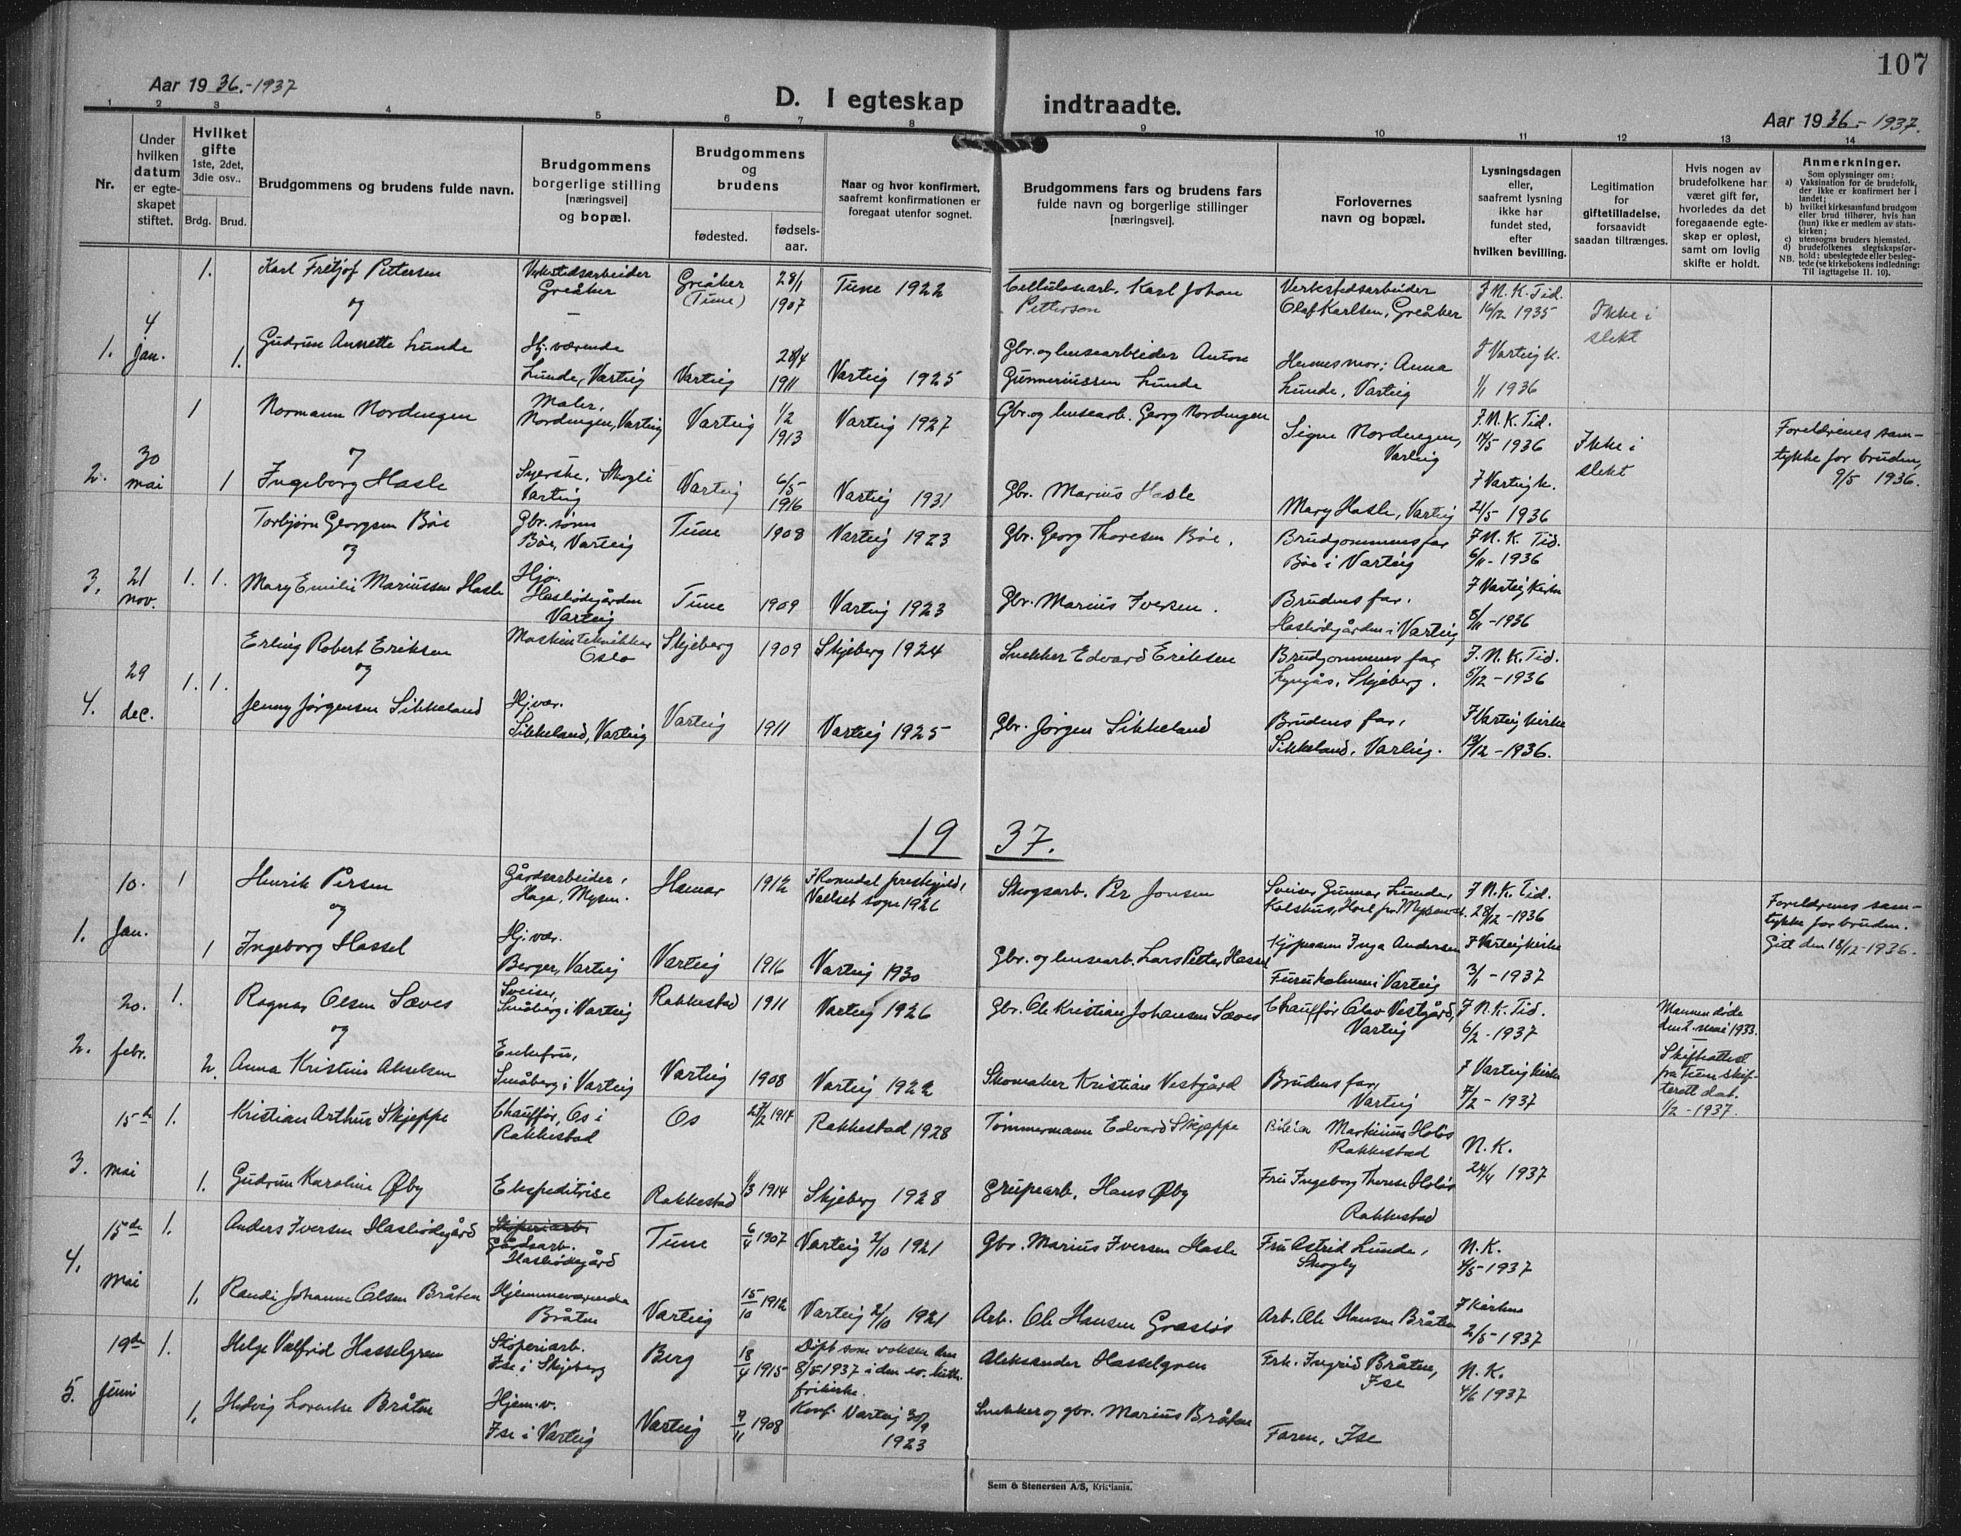 107
Aar 1936.-1937
D. I egteskap indtraadte.
Aar 1936.-1937.
1 2 3 4 5 6 7 8 9 10 11 12 13 14
Nr.
Under hvilken datum er egteskapet stiftet.
Hvilket gifte
1ste, 2det, 3die osv..
Brdg. Brud.
Brudgommens og brudens fulde navn.
Brudgommens borgerlige stilling [næringsvei] og bopæl.
Brudgommens og brudens
fødested.
fødselsaar.
Naar og hvor konfirmert, saafremt konfirmationen er foregaat utenfor sognet.
Brudgommens fars og brudens fars fulde navn og borgerlige stillinger [næringsvei].
Forlovernes navn og bopæl.
Lysningsdagen eller, saafremt lysning ikke har fundet sted, efter hvilken bevilling.
Legitimation for giftetilladelse, forsaavidt saadan tiltrænges.
Hvis nogen av brudefolkene har været gift før, hvorledes da det foregaaende egteskap er opløst, samt om lovlig skifte er holdt.
Anmerkninger.
Som oplysninger om:
a) Vaksination for de brudefolk, der ikke er konfirmert her i landet;
b) hvilket kirkesamfund brudgom eller brud tilhører, hvis han (hun) ikke er medlem av statskirken;
c) utensogns bruders hjemsted.
d) brudefolkenes slegtskapsforhold: ubeslegtede eller beslegtede (se kirkebokens indledning: Til iagttagelse II. 10).
NB.
1. 4 Jan.
1. Karl Fritjof Pettersen
Verkstedsarbeider Greåker
Greåker (Tune) 28/1 1907
Tune 1922
Cellulosearb. Karl Johan Pettersen
Verkstedsarbeider Olaf Karlsen, Greåker
I N. K. Tid. 16/12 1935
Ikke i slekt
og
1. Gudrun Annette Lunde
Hj. værende Lunde, Varteig
Varteig 28/4 1911
Varteig 1925
Gbr. og husearbeider Anton Gunneriussen Lunde
Hennes mor: Anna Lunde, Varteig
I Varteig k. 1/1 1936
2. 30 mai
1 Normann Nordengen
Maler, Nordengen, Varteig
Varteig 1/2 1913
Varteig 1927
Gbr. og husearb. Georg Nordengen
Signe Nordengen, Varteig
I N. K. Tid. 19/5 1936
Ikke i slekt
Foreldrenes samtykke for bruden, 9/5 1936.
1 Ingeborg Hasle
Syerske, Skogli Varteig
Varteig 6/5 1916
Varteig 1931
Gbr. Marius Hasle
Mary Hasle, Varteig
I Varteig k. 21/5 - 1936
3. 21 nov. 1. 1.
Torbjørn Georgsen Bøe
Gbr. sønn Bøe, Varteig
Tune 1908
Varteig 1923
Gbr. Georg Thoresen Bøe.
Brudgommens far Bøe i Varteig
I N. K. Tid. 6/11 - 1936
og
Mary Emilie Mariussen Hasle
Hjv. Haslødegården Varteig
Tune 1909
Varteig 1923
Gbr. Marius Iversen.
Brudens far. Haslødegården i Varteig
I Varteig kirke 8/11 - 1936
4. 29 dec. 1. 1.
Erling Robert Eriksen
Maskintekniker Oslo
Skjeberg 1909
Skjeberg 1924
Snekker Edvard Eriksen
Brudgommens far Skjeberg.
I. N. K. Tid. 5/12 - 1936
og
Jenny Jørgensen Sikkeland
Hj. vær. Sikkeland, Varteig
Varteig 1911
Varteig 1925
Gbr. Jørgen Sikkeland
Brudens far, Sikkeland, Varteig.
I Varteig kirke 13/12 - 1936.
1937.
1. 10. Jan.
1 Henrik Persen
Gårdsarbeider, Haga, Mysen.
Hamar 1912
I Romedal prestegjeld, Vallset sogn 1926
Skogsarb. Per Jonsen
Sveiser Gunnar Lunder
I N. K. Tid. 28/12 - 1936
Foreldrenes samtykke for bruden. Gitt den 18/12 - 1936.
og
1 Ingeborg Hassel
Hj. vær. Berger, Varteig
Varteig 1916
Varteig 1930
Gbr. og husearb. Lars Petter Hassel
Inga Andersen Furukolmen i Varteig
I Varteig kirke 3/1 - 1937
2. 20. febr.
1. Ragnar Olsen Sæves
Sveiser, Småberg i Varteig
Rakkestad 1911
Varteig 1926
Gbr. Ole Kristian Johansen Sæves
Chauffør Olav Vestgård, Varteig
I N. K. Tid. 6/2 - 1937
Mannen døde den 2. mai 1933. Skifteattest fra Tune skifterett dat. 1/2 - 1937.
og
2. Anna Kristine Akselsen
Enkefru, Småberg i Varteig
Varteig 1908
Varteig 1922
Skomaker Kristian Vestgård
Brudens far, Varteig
I Varteig kirke 7/2 - 1937
3. 15de mai
1. Kristian Arthur Skjeppe
Chauffør, Os i Rakkestad
Os 27/2 1914
Rakkestad 1928
Tømmermann Edvard Skjeppe
Martinius Holøs Rakkestad
N. K. 24/4 1937
1. Gudrun Karoline Øby
Ekspeditrise
Rakkestad 1/3 1914
Skjeberg 1928
Grupearb. Hans Øby
Fru Ingeborg Therese Holøs Rakkestad
4. 15de mai
1. Anders Iversen Haslødegård
Støperiarb. Gårdsarb. Haslødegård
Tune 6/4 1907
Varteig 2/10 1921
Gbr. Marius Iversen Hasle
Fru Astrid Lunde, Skogly
N. K. 4/5 - 1937
1. Randi Johanne Olsen Bråten
Hjemmeværende Bråten
Varteig 15/10 1912
Varteig 2/10 1921
Arb. Ole Hansen Grasløs
Arb. Ole Hansen Bråten
I kirken 2/5 - 1937
5. 19de Juni
1. Helge Valfrid Hasselgren
Støperiarb. Ise i Skjeberg
Berg 18/4 1915
Døpt som voksen den 8/5 1937 i den ev. luth. frikirke.
Aleksander Hasselgren
Frk. Ingrid Bråten, Ise
N. K. 4/6 1937
1. Hedvig Lovende Bråten
Hjem. v. Ise i Varteig
Varteig 7/11 1908
Konf. Varteig 30/9 1923
Snekker og gbr. Marius Bråten
Faren, Ise
Sem & Stenersen A/S, Kristiania.